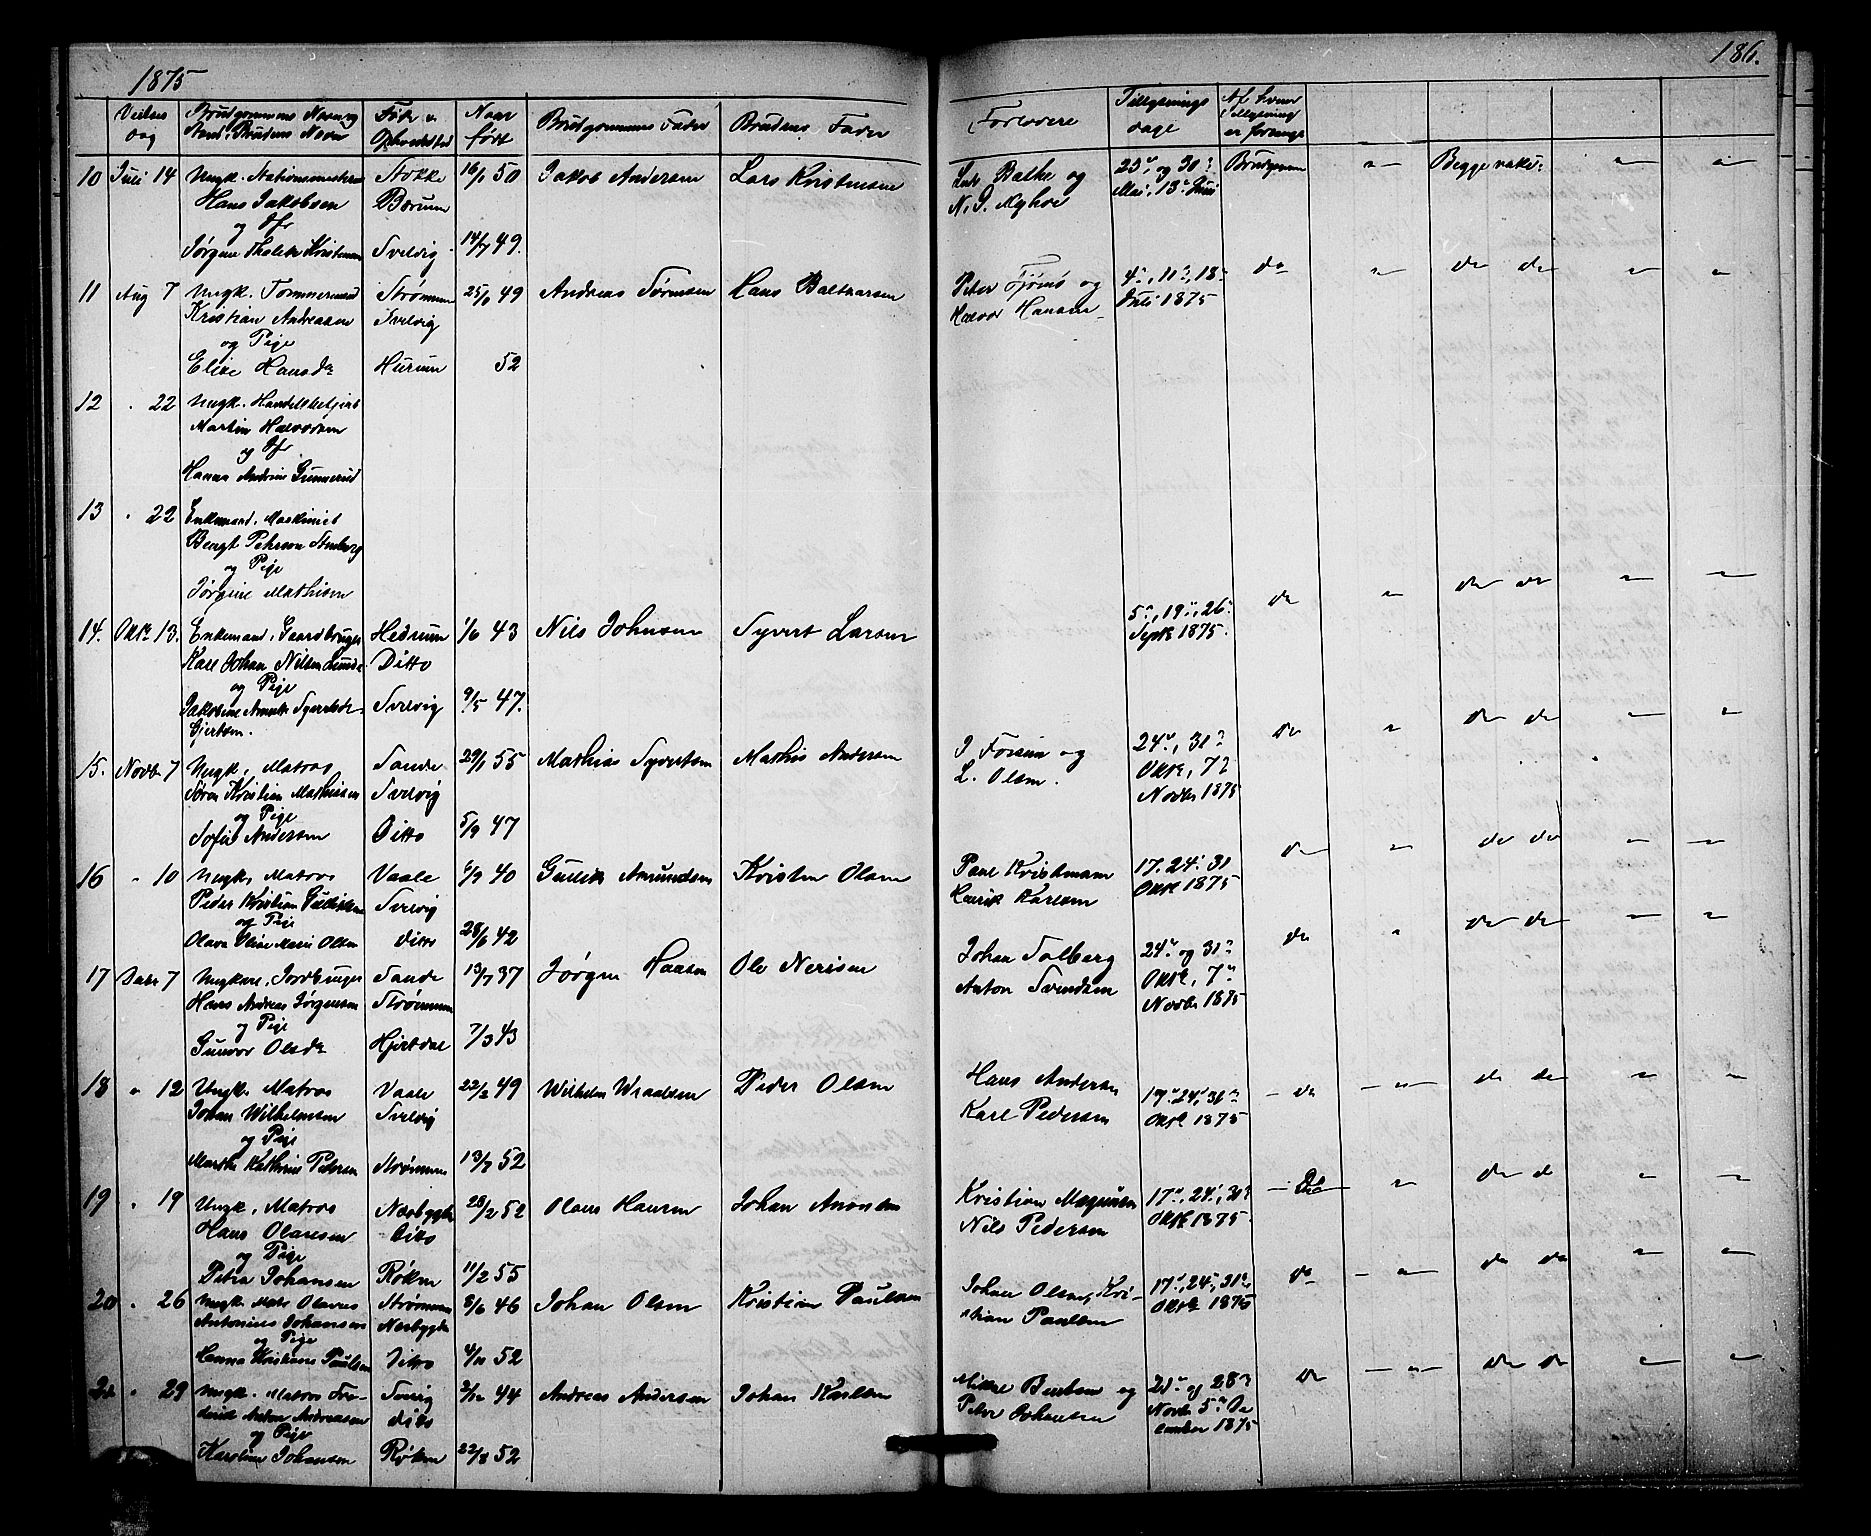 1875
186.
Vielses dag
Brudgommens Navn og Stand, Brudens Navn
Føde & Opholdssted
Naar født
Brudgommens Fader
Brudens Fader
Forlovere
Tillysnings dage
Af hvem Tillysning er forlangt
10 Juli 14 Ungk. Stokke 16/1 50 Jakob Andersen Lars Kristensen
Balke og 23de og 30te Brudgom " Begge vake: " "
Hans Jakobsen Bærum
N. J. Myhre Mai, 13de Juni
og Jfr
Jørgine Thalette Kristensen Svelvig 14/7 49.
11 Aug 7 Ungk. Tømmermand Strømmen 25/9 49 Andreas Sørensen Hans Baltharsen
Peter Fjørtoft og 4de, 11te, 18de do " do do " "
Kristian Andreasen Svelvig
Halvor Hansen Juli 1875
og Pige
Eline Hansdr Hurum 52
12 " 22 Ungk. Handelsbetjent
Martin Halvorsen
og Jfr
Hanna Andrine Gunnerud
13 " 22 Enkemand, Maskinist
Bengt Pehrson
og Pige
Jørgine Mathisen
14. Oktr 13. Enkemand, Gaardbruger Hedrum 1/6 43 Nils Johnsen Syvert Larsen
5te, 19de, 26de do " do do " "
Septr 1875.
Karl Johan Nilsen Lunde Ditto
og Pige
Jakobine Amalie Syvertsdr Svelvig 9/5 47.
Gjertsen.
15. Novbr 7 Ungk. Matros Sande 29/1 55 Mathias Syvertsen Mathis Andersen
J. Fossum og 24de, 31te do " do do " "
Søren Kristian Mathiesen Svelvig
L. Olsen. Oktr, 7de
og Pige Novbr 1875
Sofie Andersen Ditto 5/9 47
16 " 10 Ungk. Matros Vaale 6/9 40 Gullik Amundsen Kristen Olsen
Paul Kristensen 17. 24. 31 do " do do " "
Peder Kristian Gulliksen Svelvig
Henrik Karlsen Oktr 1875
og Pige
Olava Oline Marie Olsen ditto 28/6 42
17 Decbr 7 Ungkarl, Jordbruger Sande 13/7 37 Jørgen Hansen Ole Nerisen
Johan Solberg 24de og 31te do " do do " "
Hans Andreas Jørgensen Strømmen
Anton Svendsen Oktr, 7de
og Pige Novbr 1875
Gunvor Olsdr Hjertdal 7/3 43
18 " 12 Ungk. Matros Vaale 22/2 49 Wilhelm Wraalsen Peder Olsen
Hans Andersen 17de 24de, 31te do " do do " "
Johan Wilhelmsen Svelvig
Karl Pedersen Oktr 1875
og Pige
Marthe Kathrine Pedersen Strømmen 13/7 52
19 " 19 Ungk. Matros Næsbygda 28/2 52 Olaus Hansen Johan Anonsen
Kristian Magnusen 17de, 24de, 31te do " do do " "
Hans Olausen Ditto
Nils Pedersen Oktr 1875.
og Pige
Petra Johansen Røken 11/2 55
20 " 26 Ungk. Matr. Olavus Strømmen 8/6 46 Johan Olsen Kristian Paulsen
Johan Olsen, Kri- 17de, 24de, 31te do " do do " "
Antonius Johansen Næsbygda
stian Paulsen Oktr 1875
og Pige
Hanna Kristiane Paulsen Ditto 4/10 52
21 " 29 Ungk. Matros Fre- Svelvig 2/12 44 Andreas Andersen Johan Karlsen
Mikkel Bentsen og 21de og 28de do " do do " "
derik Anton Andreasen ditto
Peter Johansen Novbr 5te De
og Pige cember 1875
Karoline Johansen Røken 22/8 52